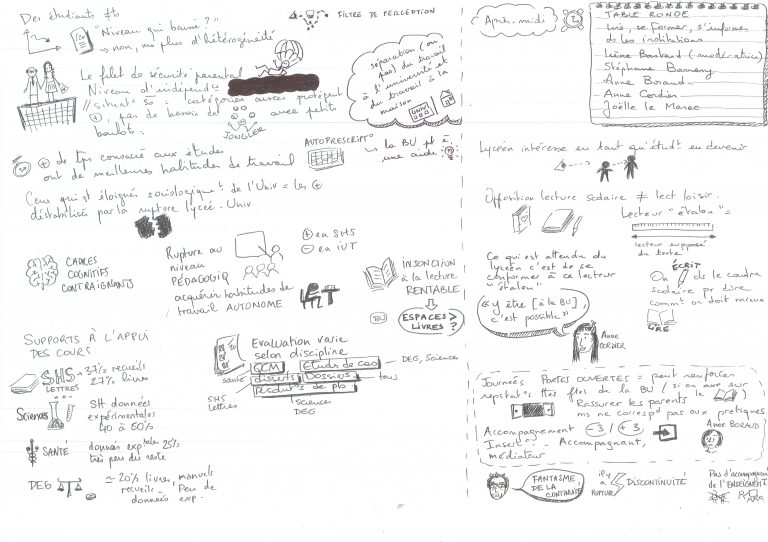 Des étudiants
Niveau qui baisse ?"
→ non, mais plus d'hétérogénéité
FILTRE DE PERCEPTION
Le filet de sécurité parental
Niveau d'
catégories aisées protègent
pas besoin de avec petits
boulots.
JONGLER
separation (ou
pas) du travail
à l'université et
du travail à la
maison
UNIV
↳ la BU pt ê
une aide
⊕ de tps consacré aux études
ont de meilleures habitudes de travail
AUTOPRESCRIPT°
Ceux qui st éloignés sociologiqt de l'Univ = les ⊕
déstabilisés par la rupture lycée-Univ
CADRES
COGNITIFS
CONTRAIGNANTS
Rupture au
niveau
PÉDAGOGIQ
acquérir habitudes de
travail AUTONOME
⊕ en SHS
⊖ en IUT
INJONCTION
à la lecture
RENTABLE
BU
ESPACES >
LIVRES ?
SUPPORTS À L'APPUI
DES COURS
SHS
LETTRES
→ 37% recueils
27% livres
Sciences
SH données
expérimentales
40 à 60%
SANTÉ
données exptales 25%
très peu du reste
DEG
≃ 20% livres, manuels
recueils. Peu de
données exp.
Evaluation varie
selon discipline
QCM
Etude de cas
DEG, Sciences
santé
disserts
Dossiers
tous
SHS
Lettres
Product° de pb
Sciences
DEG
Après-midi
TABLE RONDE
Lire, se former, s'informer
ds les institutions
Irène Bastard (modératrice)
Stéphane
Anne Boraud
Anne Cordier
Joëlle le Marec
Lycéen intéresse en tant qu'étudt en devenir
Opposition lecture scolaire ≠ lect loisir.
Lecteur "étalon" =
lecteur supposé
du texte
Ce qui est attendu du
lycéen c'est de se
conformer à ce lecteur
"étalon"
ÉCRIT
On ds le cadre
scolaire pr dire
commt on doit mieux
LIRE
"y être [à la BU]
c'est possible"
Anne
CORDIER
JOURNÉES PORTES OUVERTES = peut renforcer
représtat° ttes ftes de la BU (si on axe sur
le )
Rassurer les parents
ms ne correspd pas aux pratiques
Accompagnement -3 / +3
Insert° - Accompagnant,
médiateur
Anne BORAUD
FANTASME
DE LA
CONTINUITÉ
il y
a
RUPTURE
DISCONTINUITÉ
Pas d'accompagnt
de l'ENSEIGNEMT